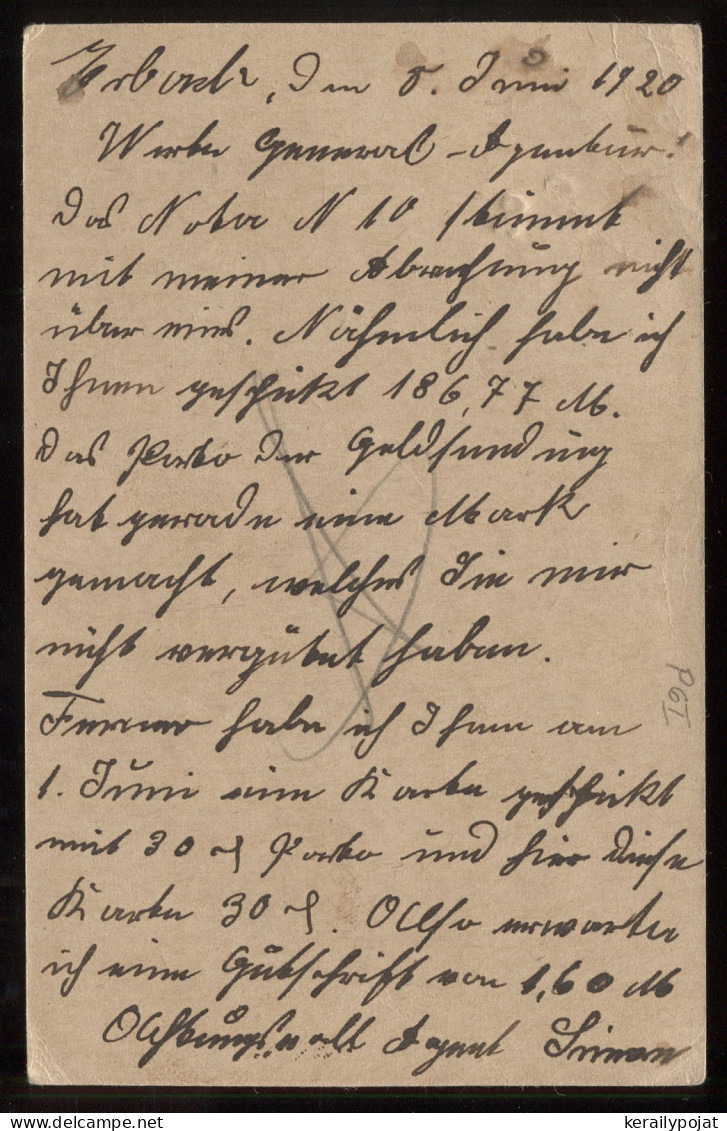 Erbach, den 8. Juni 1920
Werte General-Agentur!
Das Nota N 10 stimmt
mit meiner Abrechnung nicht
über eins. Nähmlich habe ich
Ihnen geschickt 186,77 M.
Das Porto der Geldsendung
hat gerade eine Mark
gemacht, welches Sie mir
nicht vergütet haben.
Ferner habe ich Ihnen am
1. Juni eine Karte geschickt
mit 30 ₰ Porto und hier diese
Karte 30 ₰. Also erwarte
ich eine Gutschrift von 1,60 M
Achtungsvoll Agent
PGI
www.kerailypojat.com